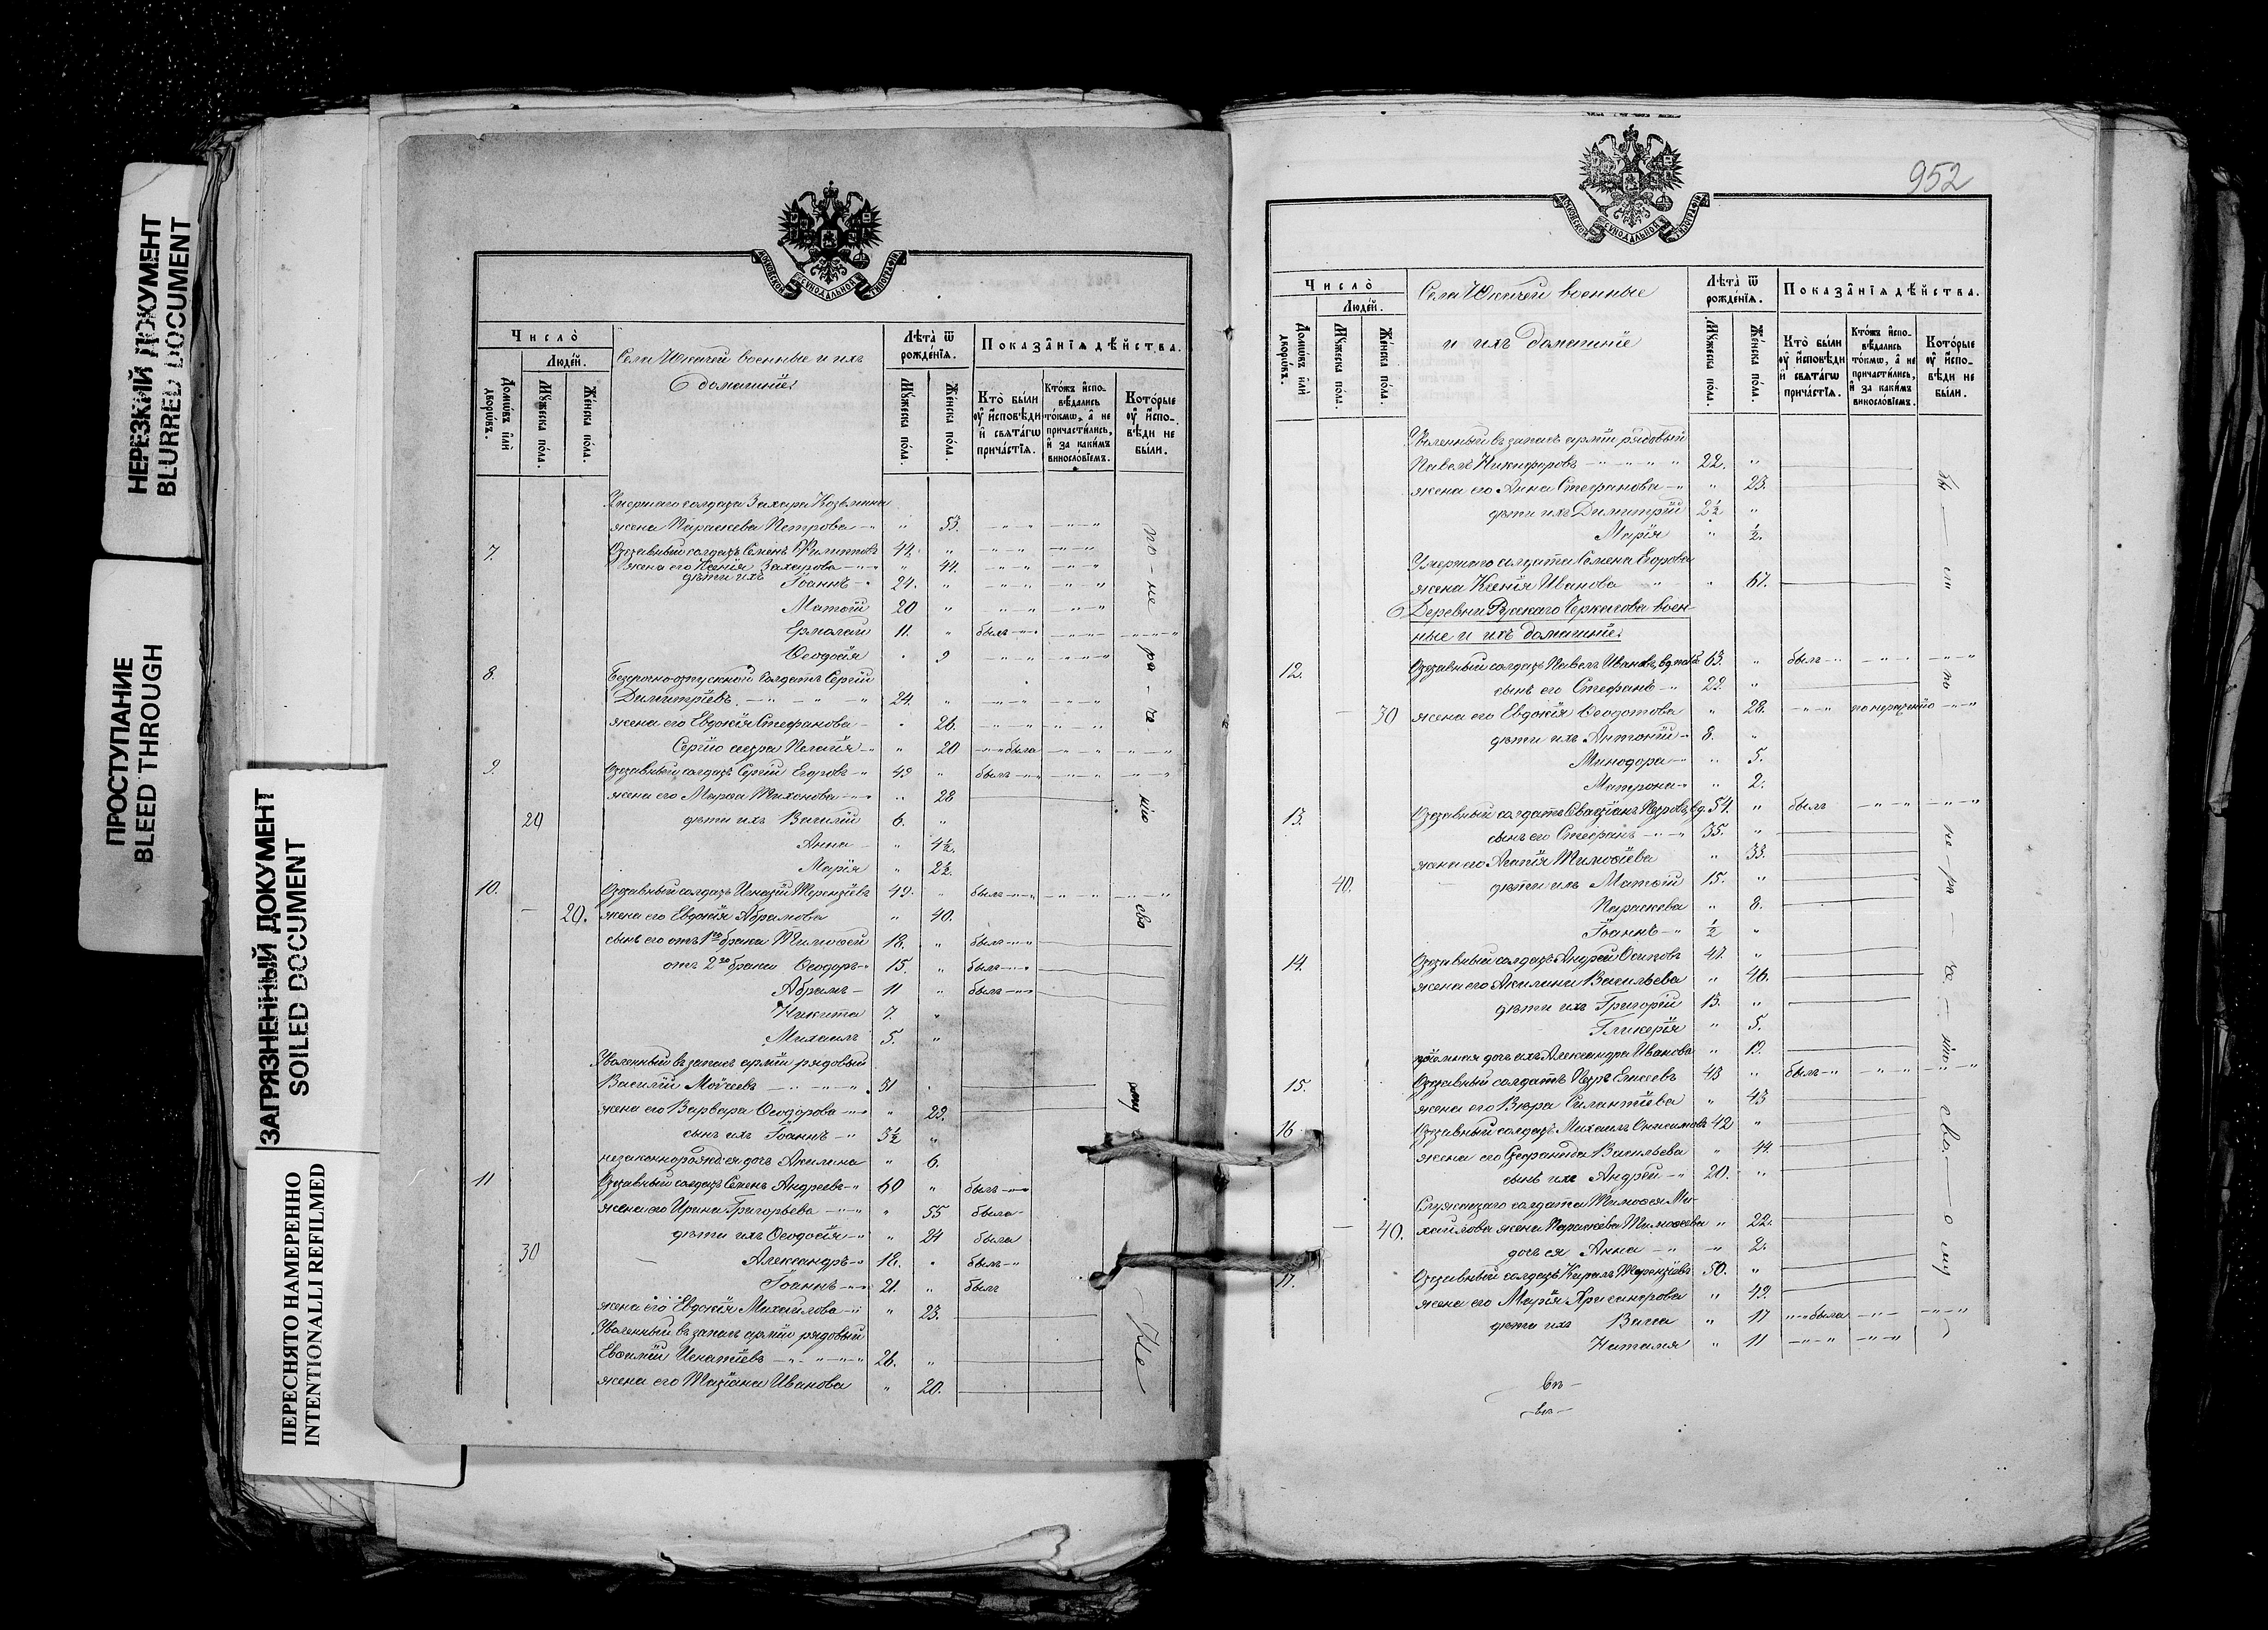 НЕРЕЗКИЙ ДОКУМЕНТ
BLURRED DOCUMENT
ПРОСТУПАНИЕ
BLEED THROUGH
ЗАГРЯЗНЕННЫЙ ДОКУМЕНТ
SOILED DOCUMENT
ПЕРЕСНЯТО НАМЕРЕННО
INTENTIONALLI REFILMED
МОСКОВСКОЙ СѴНОДАЛЬНОЙ ТИПОГРАФІИ
Число̀
Люде́й.
Домѡ́въ и҆лѝ дворѡ́въ.
Мꙋ́жеска по́ла.
Же́нска по́ла.
Села Шкачей военные и ихъ
домашніе:
Лѣта̀ ѿ рожде́нїѧ.
Мꙋ́жеска по́ла.
Же́нска по́ла.
Показа̑нїѧ дѣ́йства.
Кто̀ бы́ли ᲂу҆ и҆́сповѣди и҆ свѧта́гѡ прича́стїѧ.
Кто́жъ и҆спо-вѣ́дались то́кмѡ, а҆ не причасти́лись, и҆ за каки́мъ виносло́вїемъ.
Кото́рые ᲂу҆ и҆́спо-вѣди не бы́ли.
Умершаго солдата Захара Козьмина
жена Параскева Петрова 53.
7. Отставный солдатъ Семенъ Филипповъ 44.
жена его Ксенія Захарова 44.
дѣти ихъ Іоаннъ 24.
Матѳій 20
Ермолай 11. былъ
Ѳеодосія 9
8. Безсрочно-отпускной солдатъ Сергій
Димитріевъ 24.
жена его Евдокія Стефанова 26.
Сергію сестра Пелагія 20 была
9. Отставный солдатъ Сергій Егоровъ 49 былъ
жена его Марѳа Тихонова 28
20 дѣти ихъ Василій 6.
Анна 4½.
Марія 2½.
10. Отставный солдатъ Игнатій Терентіевъ 49. былъ
20. жена его Евдокія Абрамова 40.
сынъ его отъ 1го брака Тимоѳей 18. былъ
отъ 2го брака Ѳеодоръ 15. былъ
Абрамъ 11 былъ
Никита 7.
Михаилъ 5.
Уволенный въ запасъ арміи рядовый
Василій Моѵсеевъ 31
жена его Варвара Ѳеодорова 22.
сынъ ихъ Іоаннъ 3½
незаконнорожд. ея дочь Акилина 6.
11 Отставный солдатъ Семенъ Андреевъ 60 былъ
жена его Ирина Григорьева 55 была
дѣти ихъ Ѳеодосія 24 была
30 Александръ 18. былъ
Іоаннъ 21. былъ
жена его Евдокія Михайлова 23.
Уволенный въ запасъ арміи рядовый
Евѳимій Игнатіевъ 26.
жена его Татіана Иванова 20.
952
МОСКОВСКОЙ СѴНОДАЛЬНОЙ ТИПОГРАФІИ
Число̀
Люде́й.
Домѡ́въ и҆лѝ дворѡ́въ.
Мꙋ́жеска по́ла.
Же́нска по́ла.
Села Шкачей военные
и ихъ домашніе
Лѣта̀ ѿ рожде́нїѧ.
Мꙋ́жеска по́ла.
Же́нска по́ла.
Показа̑нїѧ дѣ́йства.
Кто̀ бы́ли ᲂу҆ и҆́сповѣди и҆ свѧта́гѡ прича́стїѧ.
Кто́жъ и҆спо-вѣ́дались то́кмѡ, а҆ не причасти́лись, и҆ за каки́мъ виносло́вїемъ.
Кото́рые ᲂу҆ и҆́спо-вѣди не бы́ли.
Уволенный въ запасъ арміи рядовый
Павелъ Никифоровъ 22.
жена его Анна Стефанова 23.
дѣти ихъ Димитрій 2½
Марія ½.
Умершаго солдата Семена Егорова
жена Ксенія Иванова 67.
Деревни Рускаго Черкасова воен-
ные и ихъ домашніе:
12. Отставный солдатъ Павелъ Ивановъ, вдовъ 63. былъ
сынъ его Стефанъ 22.
30 жена его Евдокія Ѳеодотова 28.
дѣти ихъ Антоній 8.
Минодора 5.
Матрона 2.
13. Отставный солдатъ Севастіанъ Петровъ, вд. 54. былъ
сынъ его Стефанъ 35.
жена его Агапія Тимоѳіева 33.
40. дѣти ихъ Матѳій 15.
Параскева 8.
Іоаннъ ½
14. Отставный солдатъ Андрей Осиповъ 47.
жена его Акилина Васильева 46.
дѣти ихъ Григорій 13.
Гликерія 5.
пріемная дочь ихъ Александра Иванова 19.
15. Отставный солдатъ Петръ Елисеевъ 43 былъ
жена его Вѣра Силантіева 43
16 Отставный солдатъ Михаилъ Онисимовъ 42
жена его Стефанида Васильева 44.
сынъ ихъ Андрей 20.
Служащаго солдата Тимоѳея Ми-
40. хайлова жена Параскева Тимоѳеева 22.
дочь ея Анна 2.
17. Отставный солдатъ Кирилъ Терентіевъ 50.
жена его Марія Хрисанфова 49.
дѣти ихъ Васса 17 была
Наталія 11